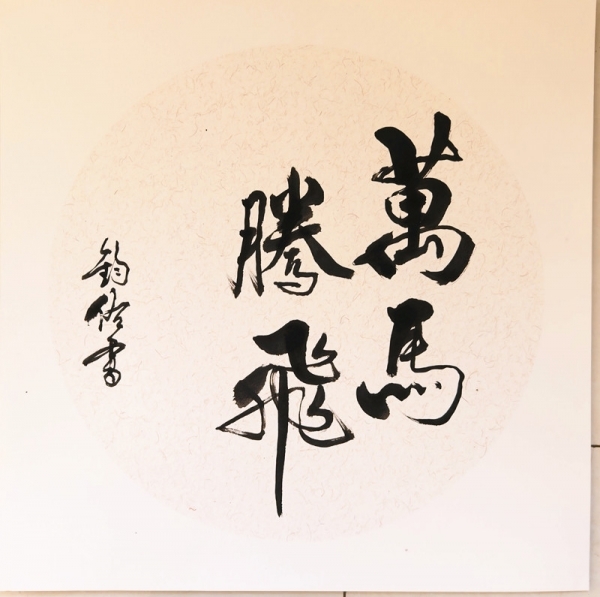 萬馬
騰飛
鈞俗書